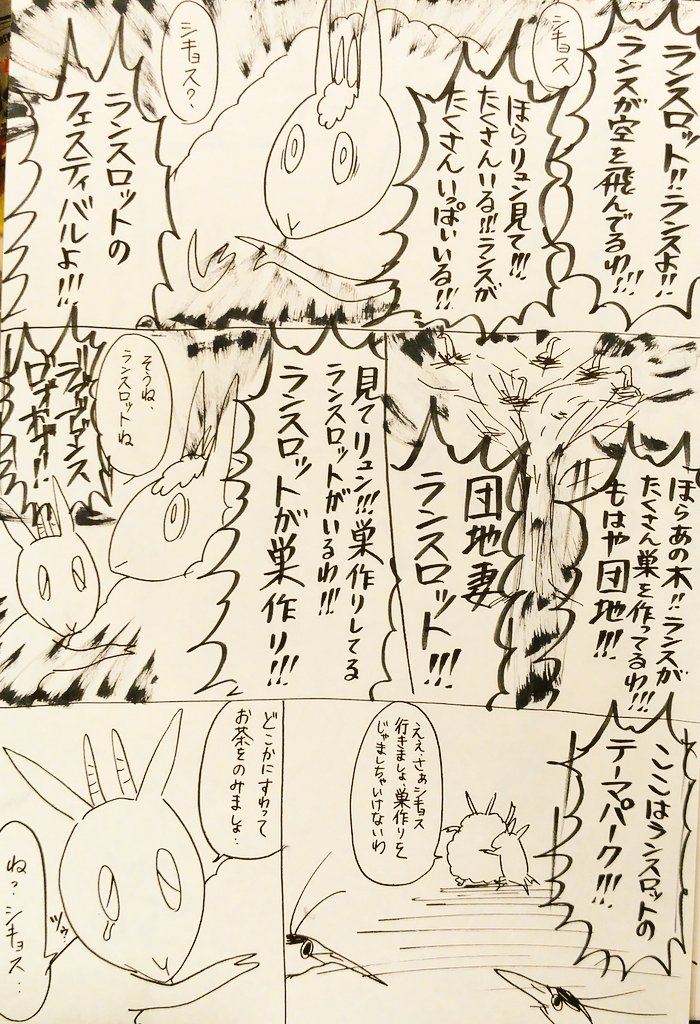 ランスロット!!ランスよ!!
ランスが空を飛んでるわ!!!
シキョス
ほらリュン見て!!!
たくさんいる!!!ランスが
たくさんいっぱいいる!!!
シキョス?
ランスロットの
フェスティバルよ!!!
ほらあの木!!ランスが
たくさん巣を作ってるわ!!!
もはや団地!!!
団地妻
ランスロット!!!
見てリュン!!!巣作りしてる
ランスロットがいるわ!!!
ランスロットが巣作り!!!
そうね、
ランスロットね
ここはランスロットの
テーマパーク!!!
ええ、さぁシキョス
行きましょ、巣作りを
じゃましちゃいけないわ
どこかにすわって
お茶をのみましょ…
ね?シキョス…